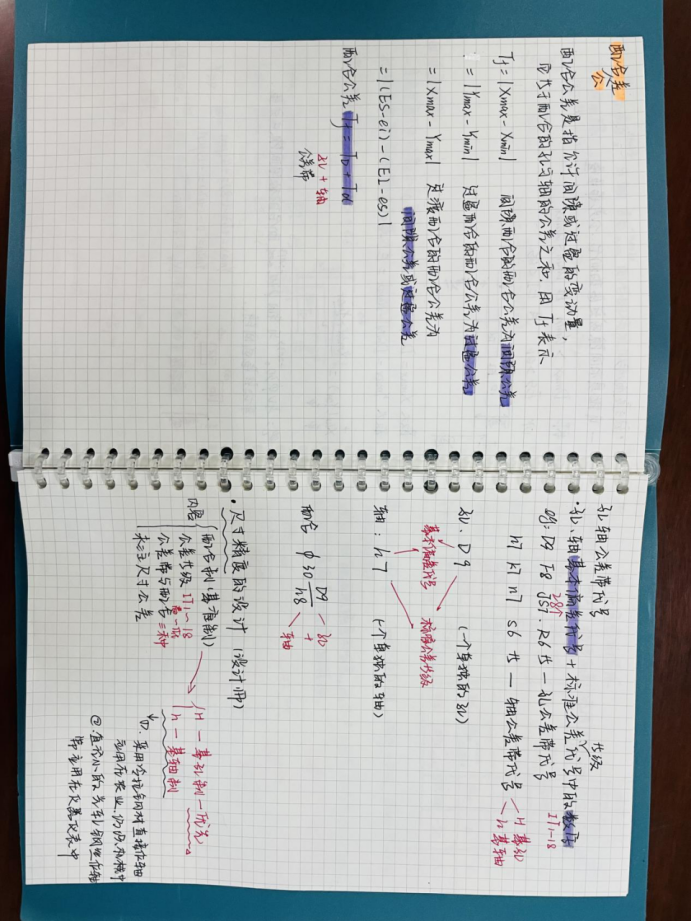 配合公差
配合公差是指允许间隙或过盈的变动量，
即等于配合的孔与轴的公差之和. 用 Tf 表示
Tf = |Xmax - Xmin| 间隙配合的配合公差为间隙公差
= |Ymax - Ymin| 过盈配合的配合公差为过盈公差
= |Xmax - Ymax| 过渡配合的配合公差为
间隙公差或过盈公差
= |(ES-ei) - (EI-es)|
配合公差 Tf = TD + Td
孔 + 轴
公差带
孔轴公差带代号
·孔、轴基本偏差代号 + 标准公差代号中的数字
等级
IT1-18
eg: D9 F8 JS7. R6 等 — 孔公差带代号
28个
h7 k7 n7 s6 等 — 轴公差带代号
H 基孔
h 基轴
孔. D 9 (一个单独的孔)
基本偏差代号 标准公差等级
轴: h 7 (一个单独的轴)
配合 φ30 D9/h8
孔
+
轴
·尺寸精度的设计 (设计师)
内容
配合制 (基准制)
公差等级 IT1-18
公差带与配合
三种
未注尺寸公差
H — 基孔制 — 优先
h — 基轴制
①. 采用冷拉钢材直接作轴